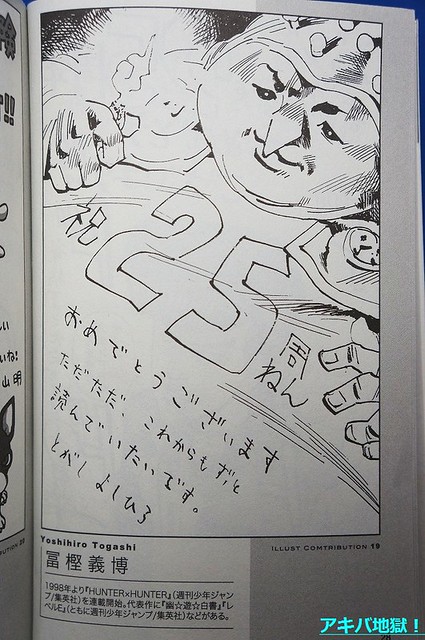 祝
25
周
ねん
おめでとうございます
ただただ、これからもずっと
読んでいたいです。
とがし よしひろ
Yoshihiro Togashi
冨樫義博
ILLUST COMTRIBUTION 19
1998年より『HUNTER×HUNTER』(週刊少年ジャン
プ/集英社)を連載開始。代表作に『幽☆遊☆白書』『レ
ベルE』(ともに週刊少年ジャンプ/集英社)などがある。
!!
しい
いね!
山 明
BUTION 20
アキバ地獄!